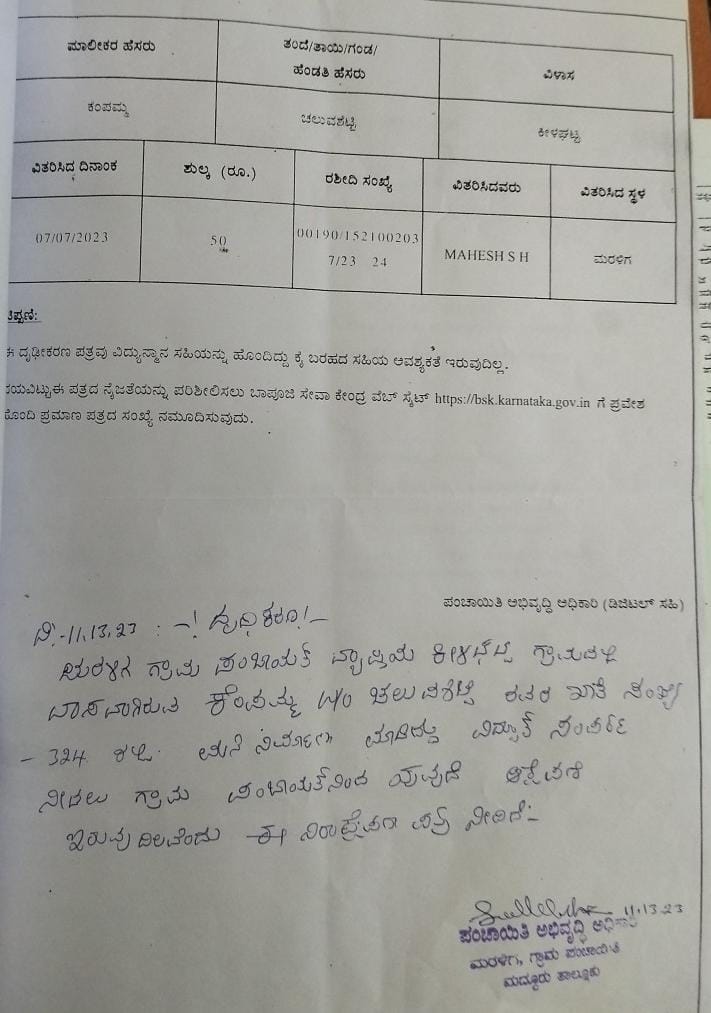 ಮಾಲೀಕರ ಹೆಸರು
ತಂದೆ/ತಾಯಿ/ಗಂಡ/
ಹೆಂಡತಿ ಹೆಸರು
ವಿಳಾಸ
ಕಂಪಮ್ಮ
ಚಲುವಶೆಟ್ಟಿ
ಕೀಳಘಟ್ಟ
ವಿತರಿಸಿದ ದಿನಾಂಕ
ಶುಲ್ಕ (ರೂ.)
ರಶೀದಿ ಸಂಖ್ಯೆ
ವಿತರಿಸಿದವರು
ವಿತರಿಸಿದ ಸ್ಥಳ
07/07/2023
50
00190/152100203
7/23 24
MAHESH S H
ಮರಳಿಗ
ಟಿಪ್ಪಣಿ:
ಈ ದೃಢೀಕರಣ ಪತ್ರವು ವಿದ್ಯುನ್ಮಾನ ಸಹಿಯನ್ನು ಹೊಂದಿದ್ದು ಕೈ ಬರಹದ ಸಹಿಯ ಅವಶ್ಯಕತೆ ಇರುವುದಿಲ್ಲ.
ದಯವಿಟ್ಟುಈ ಪತ್ರದ ನೈಜತೆಯನ್ನು ಪರಿಶೀಲಿಸಲು ಬಾಪೂಜಿ ಸೇವಾ ಕೇಂದ್ರ ವೆಬ್ ಸೈಟ್ https://bsk.karnataka.gov.in ಗೆ ಪ್ರವೇಶ
ಹೊಂದಿ ಪ್ರಮಾಣ ಪತ್ರದ ಸಂಖ್ಯೆ ನಮೂದಿಸುವುದು.
ಪಂಚಾಯಿತಿ ಅಭಿವೃದ್ಧಿ ಅಧಿಕಾರಿ (ಡಿಜಿಟಲ್ ಸಹಿ)
ದಿ:-11.13.23 :
ಮರಳಿಗ ಗ್ರಾಮ ಪಂಚಾಯತ್ ವ್ಯಾಪ್ತಿಯ ಕೀಳಘಟ್ಟ ಗ್ರಾಮದಲ್ಲಿ
ವಾಸವಾಗಿರುವ ಕೆಂಪಮ್ಮ W/o ಚಲುವಶೆಟ್ಟಿ ರವರ ಖಾತೆ ಸಂಖ್ಯೆ
- 324 ರಲ್ಲಿ ಮನೆ ನಿರ್ಮಾಣ ಮಾಡಿದ್ದು ವಿದ್ಯುತ್ ಸಂಪರ್ಕ
ನೀಡಲು ಗ್ರಾಮ ಪಂಚಾಯತ್‌ನಿಂದ ಯಾವುದೆ ಆಕ್ಷೇಪಣೆ
ಇರುವುದಿಲವೆಂದು ಈ ನಿರಾಕ್ಷೇಪಣಾ ಪತ್ರ ನೀಡಿದೆ-
11.13.23
ಪಂಚಾಯಿತಿ ಅಭಿವೃದ್ಧಿ ಅಧಿಕಾರಿ
ಮರಳಿಗ, ಗ್ರಾಮ ಪಂಚಾಯಿತಿ
ಮದ್ದೂರು ತಾಲ್ಲೂಕು